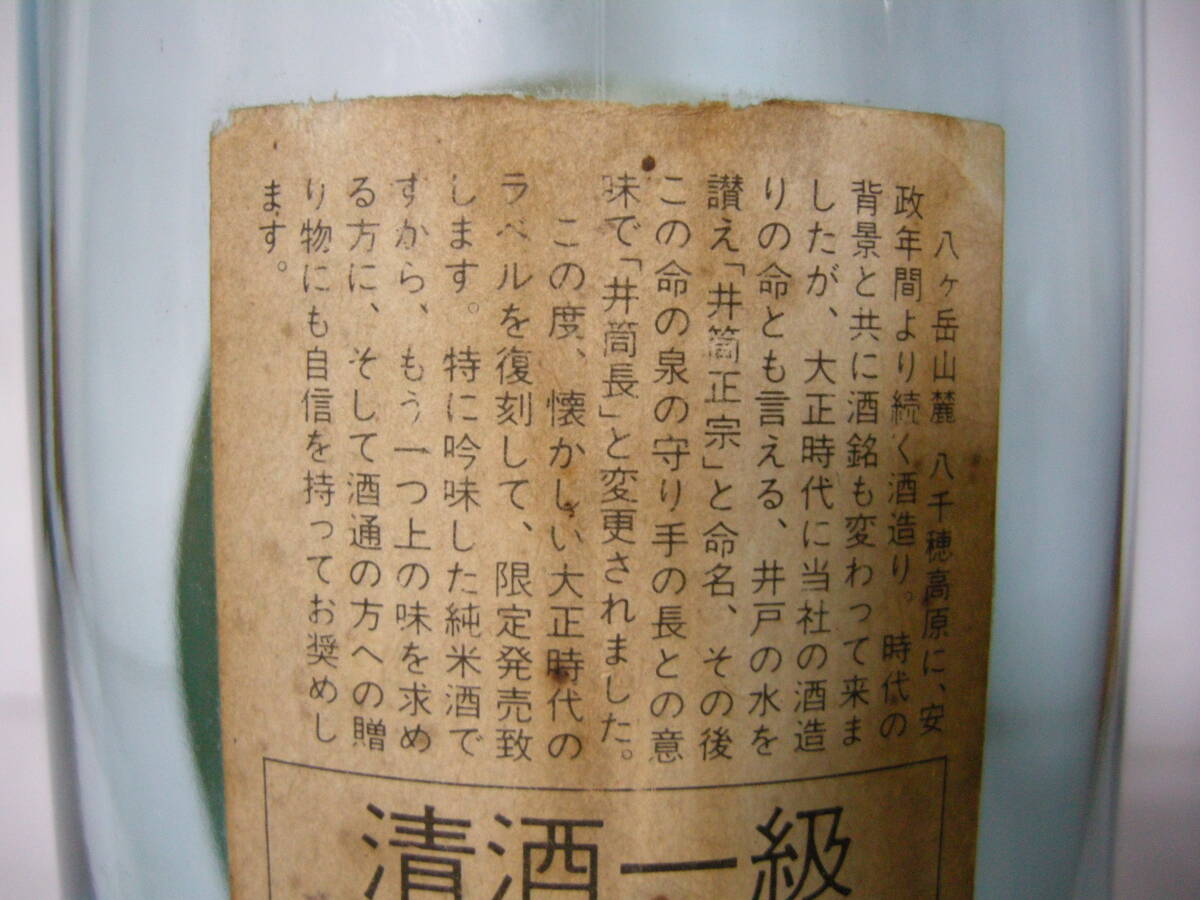 八ヶ岳山麓　八千穂高原に、安
政年間より続く酒造り。時代の
背景と共に酒銘も変わって来ま
したが、大正時代に当社の酒造
りの命とも言える、井戸の水を
讃え「井筒正宗」と命名、その後
この命の泉の守り手の長との意
味で「井筒長」と変更されました。
この度、懐かしい大正時代の
ラベルを復刻して、限定発売致
します。特に吟味した純米酒で
すから、もう一つ上の味を求め
る方に、そして酒通の方への贈
り物にも自信を持ってお奨めし
ます。
清酒一級